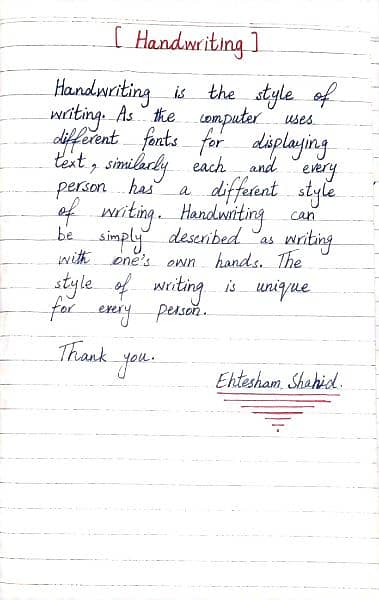 [ Handwriting ]
Handwriting is the style of
writing. As the computer uses
different fonts for displaying
text, similarly each and every
person has a different style
of writing. Handwriting can
be simply described as writing
with one's own hands. The
style of writing is unique
for every person.
Thank you.
Ehtesham Shahid.